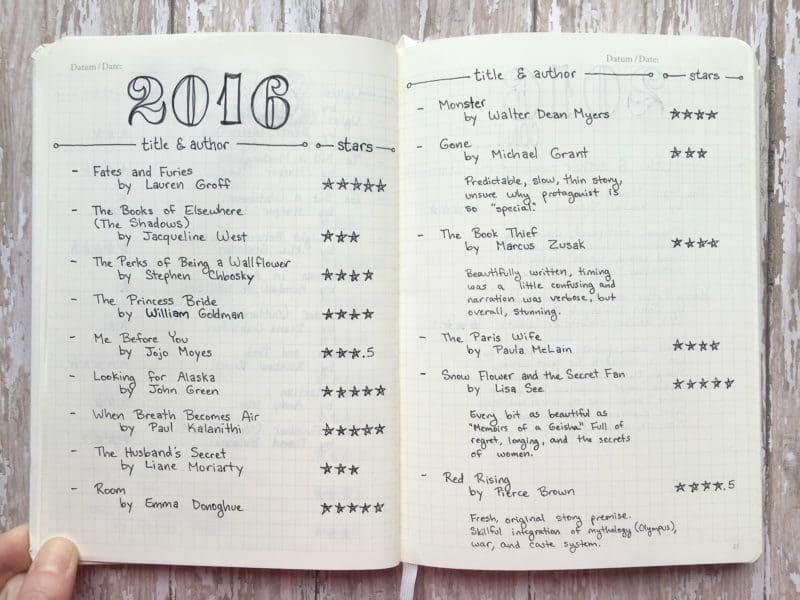 Datum/Date:
2016
title & author stars
- Fates and Furies
by Lauren Groff ★★★★★
- The Books of Elsewhere
(The Shadows)
by Jacqueline West ★★★
- The Perks of Being a Wallflower
by Stephen Chbosky ★★★★
- The Princess Bride
by William Goldman ★★★★
- Me Before You
by Jojo Moyes ★★★.5
- Looking for Alaska
by John Green ★★★★★
- When Breath Becomes Air
by Paul Kalanithi ★★★★★
- The Husband's Secret
by Liane Moriarty ★★★
- Room
by Emma Donoghue ★★★★★
Datum/Date:
title & author stars
- Monster
by Walter Dean Myers ★★★★
- Gone
by Michael Grant ★★★
Predictable, slow, thin story,
unsure why protagonist is
so "special."
- The Book Thief
by Marcus Zusak ★★★★
Beautifully written, timing
was a little confusing and
narration was verbose, but
overall, stunning.
- The Paris Wife
by Paula McLain ★★★★
- Snow Flower and the Secret Fan
by Lisa See ★★★★★
Every bit as beautiful as
"Memoirs of a Geisha." Full of
regret, longing, and the secrets
of women.
- Red Rising
by Pierce Brown ★★★★.5
Fresh, original story premise.
Skillful integration of mythology (Olympus),
war, and caste system.